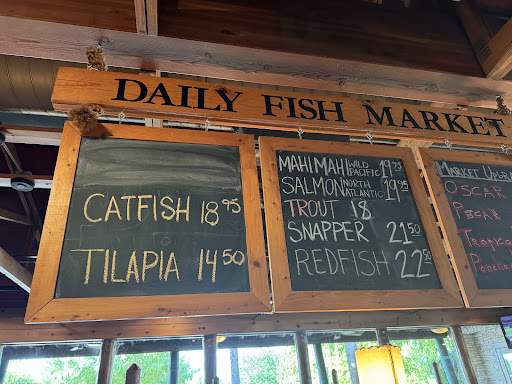 DAILY FISH MARKET
CATFISH 18 95
TILAPIA 14 50
MAHI MAHI WILD PACIFIC 19 75
SALMON NORTH ATLANTIC 19 95
TROUT 18
SNAPPER 21 50
REDFISH 22 50
MARKET
OSCAR
PECAN
TROPICAL